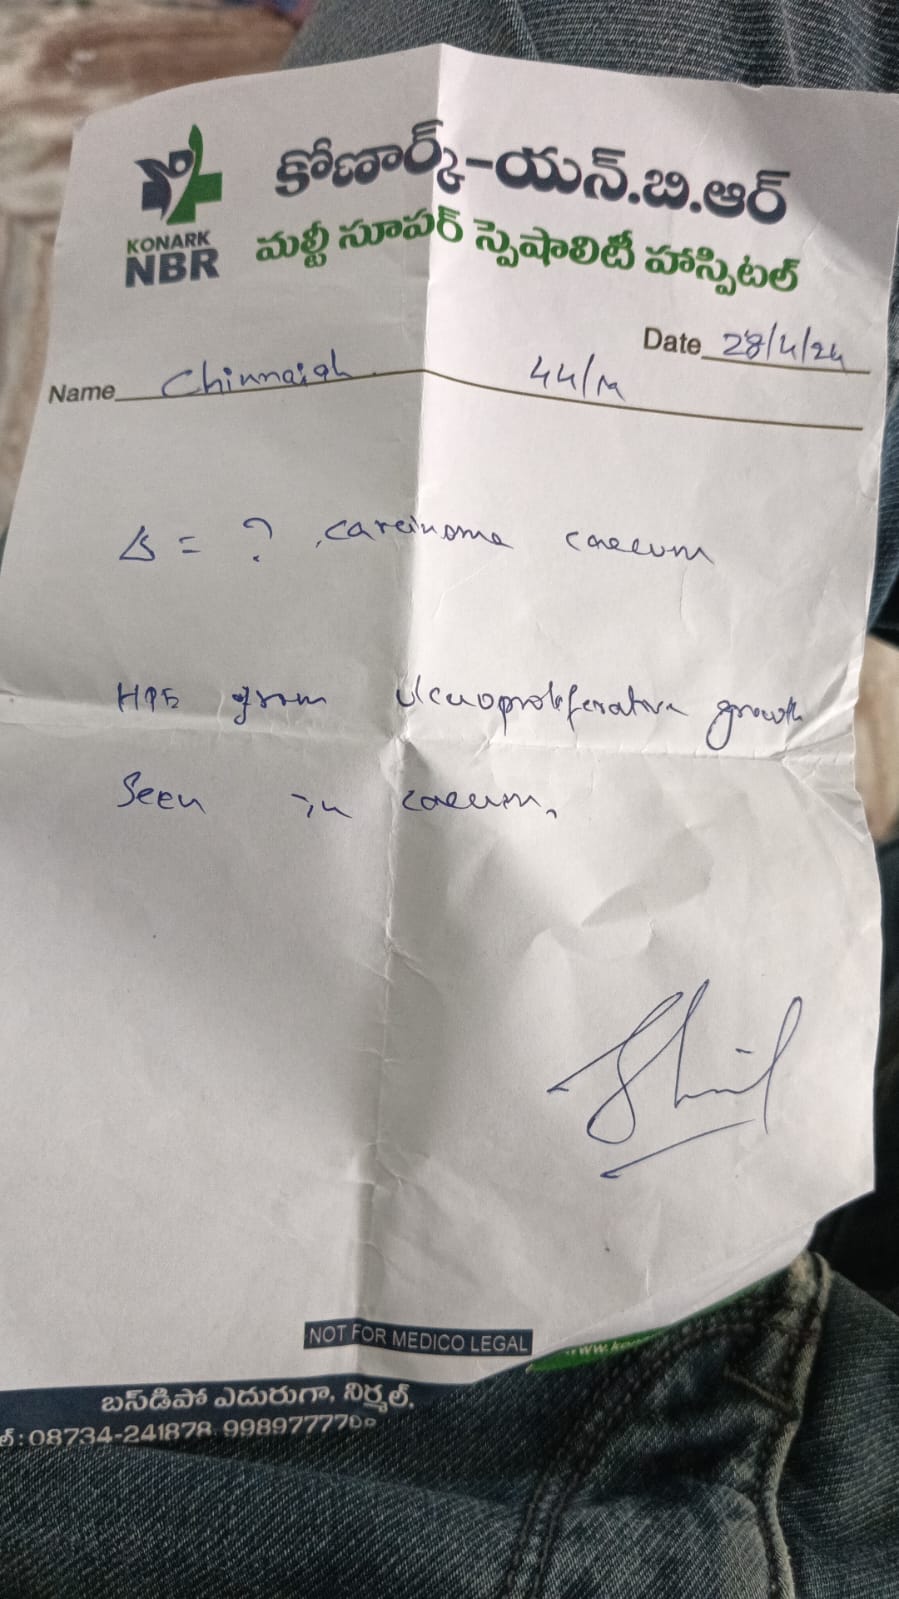 కోణార్క్-యన్.బి.ఆర్
మల్టీ సూపర్ స్పెషాలిటీ హాస్పిటల్
KONARK
NBR
Date 28/4/24
Name Chinnaiah 44/M
Δ = ? carcinoma caecum
HPE from Ulceroproliferative growth
Seen in caecum.
NOT FOR MEDICO LEGAL
బస్‌డిపో ఎదురుగా, నిర్మల్.
08734-241878